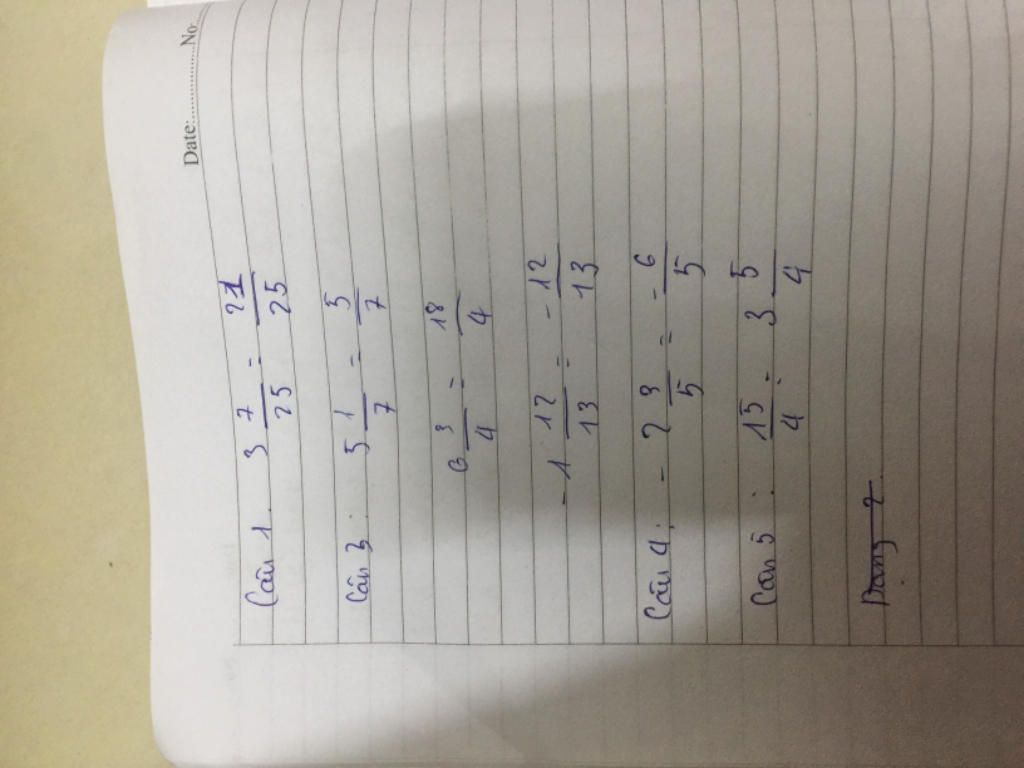 Date..................No..........
Câu 1. 3 7/25 = 21/25
Câu 3: 5 1/7 = 5/7
6 3/4 = 18/4
-1 12/13 = -12/13
Câu 4: -2 3/5 = -6/5
Câu 5: 15/4 = 3 5/4
Dạng 2